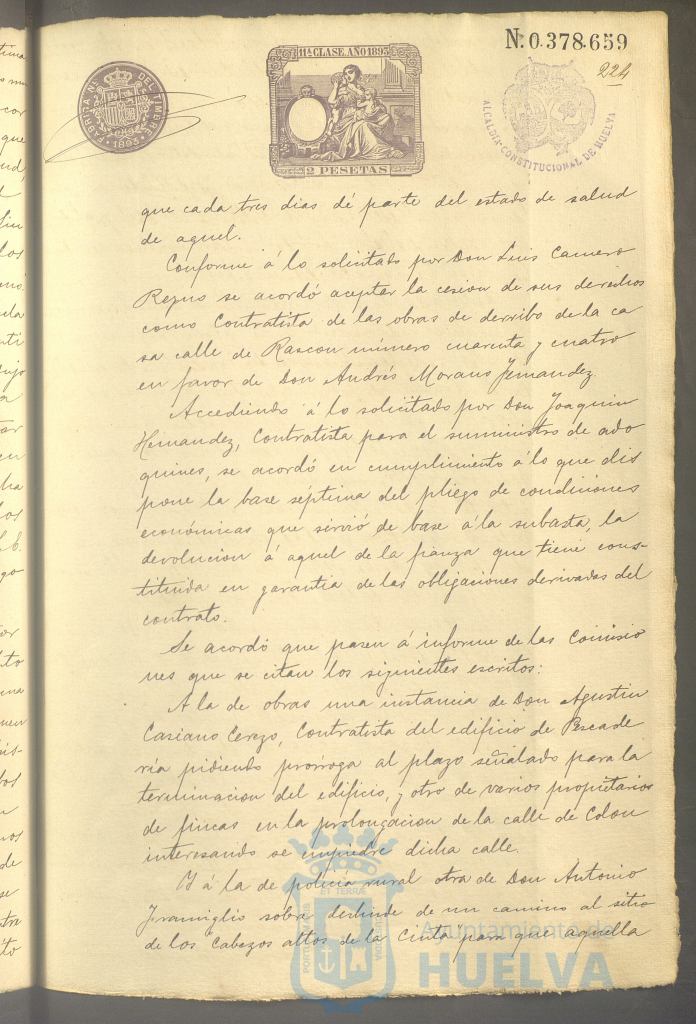 N. 0.378.659
224
11ª CLASE. AÑO 1895
FABRICA NL. DEL TIMBRE
1895
2 PESETAS
ALCALDÍA-CONSTITUCIONAL DE HUELVA
que cada tres dias dé parte del estado de salud
de aquel.
Conforme á lo solicitado por Don Luis Camero
se acordó aceptar la cesion de sus derechos
como Contratista de las obras de derribo de la ca
sa calle de Rascon número cuarenta y cuatro
en favor de Don Andrés Morano Fernandez.
Accediendo á lo solicitado por Don Joaquin
Hernandez, Contratista para el suministro de ado
quines, se acordó en cumplimiento á lo que dis
pone la base séptima del pliego de condiciones
económicas que sirvió de base á la subasta, la
devolucion á aquel de la fianza que tiene cons-
tituida en garantia de las obligaciones derivadas del
contrato.
Se acordó que pasen á informe de las Comisio
nes que se citan los siguientes escritos:
A la de obras una instancia de Don Agustin
Casiano Cerezo, Contratista del edificio de Pescade
ría pidiendo prórroga al plazo señalado para la
terminacion del edificio, y otro de varios propietarios
de fincas en la prolongacion de la calle de Colon
interesando se empiedre dicha calle.
Y á la de policía rural otra de Don Antonio
sobre deslinde de un camino al sitio
de los Cabezos altos de la Cinta para que aquella
ET TERRÆ
Ayuntamiento de
HUELVA